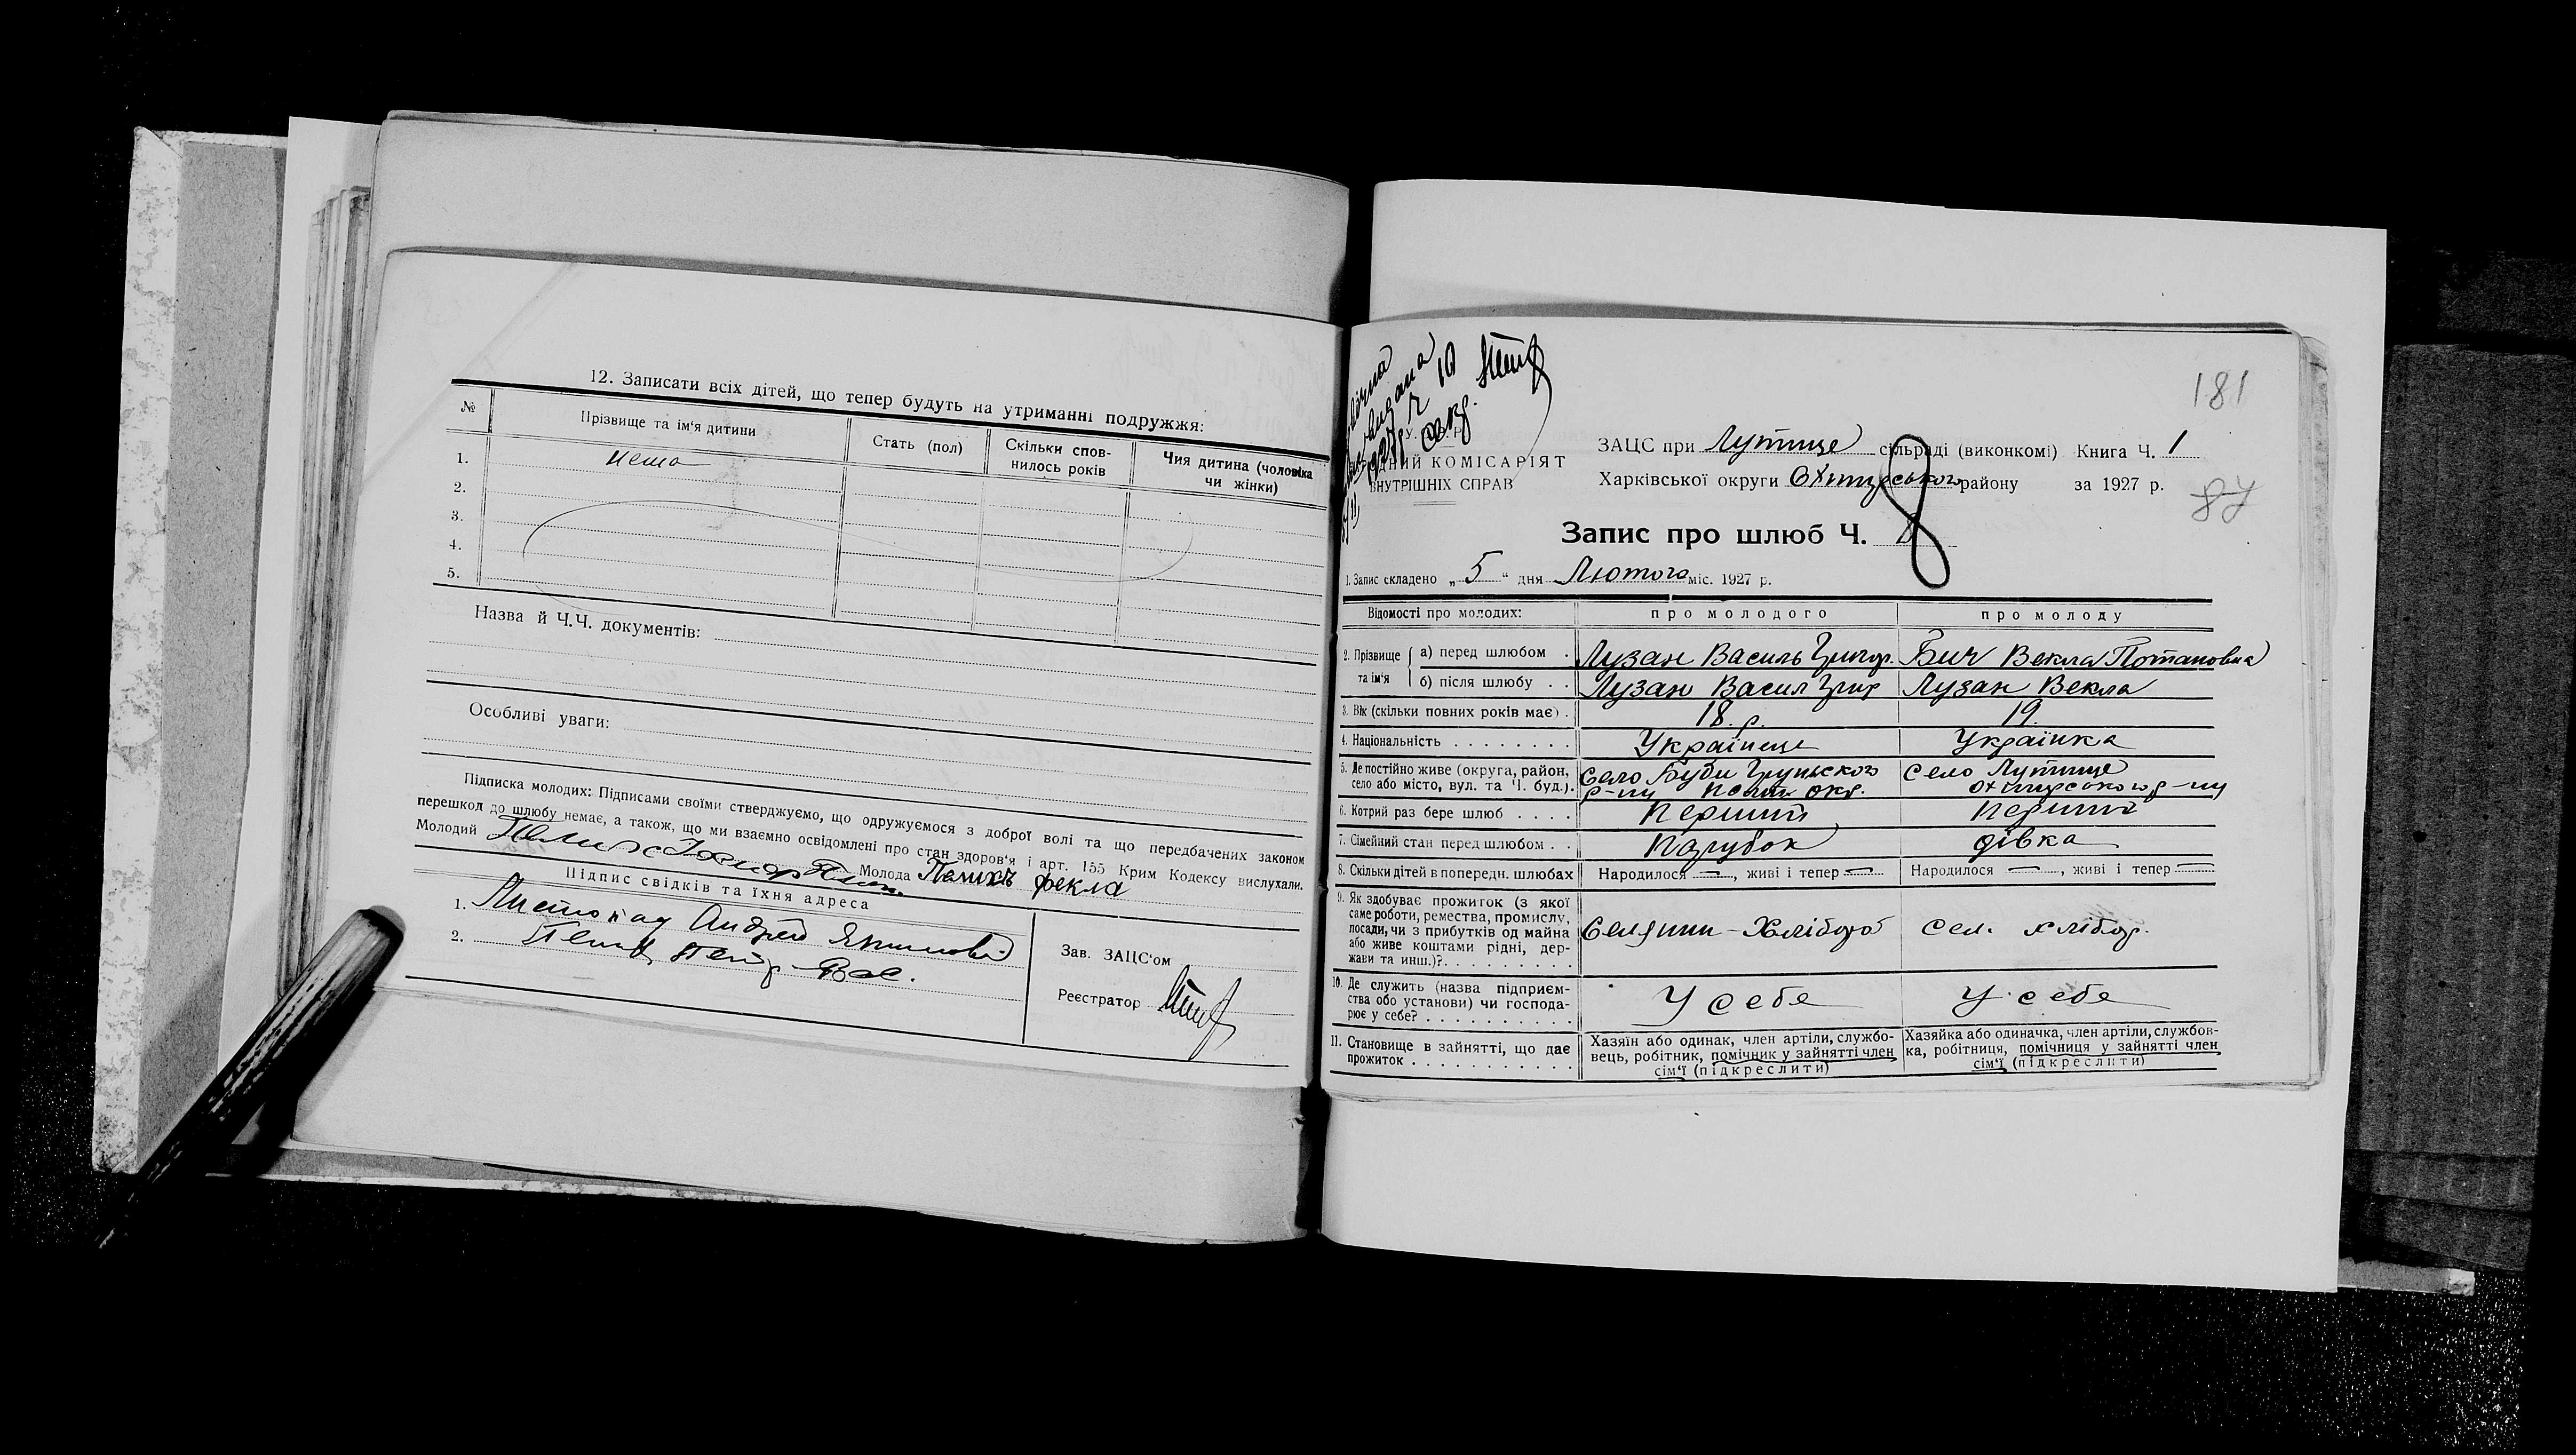 12. Записати всіх дітей, що тепер будуть на утриманні подружжя:
№ Прізвище та ім'я дитини Стать (пол) Скільки спов-нилось років Чия дитина (чоловіка чи жінки)
1. нема
2.
3.
4.
5.
Назва й Ч.Ч. документів:
Особливі уваги:
Підписка молодих: Підписами своїми стверджуємо, що одружуємося з доброї волі та що передбачених законом
перешкод до шлюбу немає, а також, що ми взаємно освідомлені про стан здоров'я і арт. 155 Крим Кодексу вислухали.
Молодий Молода фекла
Підпис свідків та їхня адреса
1. Листопад Андрей
2.
Зав. ЗАЦС'ом
Реєстратор
181
У.С.Р.Р.
КОМІСАРІЯТ
ВНУТРІШНІХ СПРАВ
ЗАЦС при Лутище сільраді (виконкомі) Книга Ч. 1
Харківської округи Охтирського району за 1927 р.
87
Запис про шлюб Ч. 8
1. Запис складено „5" дня Лютого міс. 1927 р.
Відомості про молодих: про молодого про молоду
2. Прізвище та ім'я
а) перед шлюбом Лузан Василь Григор. Бич Векла Потаповна
б) після шлюбу Лузан Васил Григ Лузан Векла
3. Вік (скільки повних років має) 18 р. 19.
4. Національність Українець Українка
5. Де постійно живе (округа, район, село або місто, вул. та Ч. буд.) Село Буди Груньского р-ну окр. Село Лутище Охтирського р-ну
6. Котрий раз бере шлюб Перший Перший
7. Сімейний стан перед шлюбом Парубок дівка
8. Скільки дітей в попередн. шлюбах Народилося —, живі і тепер — Народилося —, живі і тепер —
9. Як здобуває прожиток (з якої
саме роботи, ремества, промислу,
посади, чи з прибутків од майна
або живе коштами рідні, дер-
жави та инш.)?
Селянин-Хлібороб Сел. хлібор.
10. Де служить (назва підприєм-
ства або установи) чи господа-
рює у себе?
У себе У себе
11. Становище в зайнятті, що дає
прожиток
Хазяїн або одинак, член артіли, службо-
вець, робітник, помічник у зайнятті член
сім'ї (підкреслити)
Хазяйка або одиначка, член артіли, службов-
ка, робітниця, помічниця у зайнятті член
сім'ї (підкреслити)